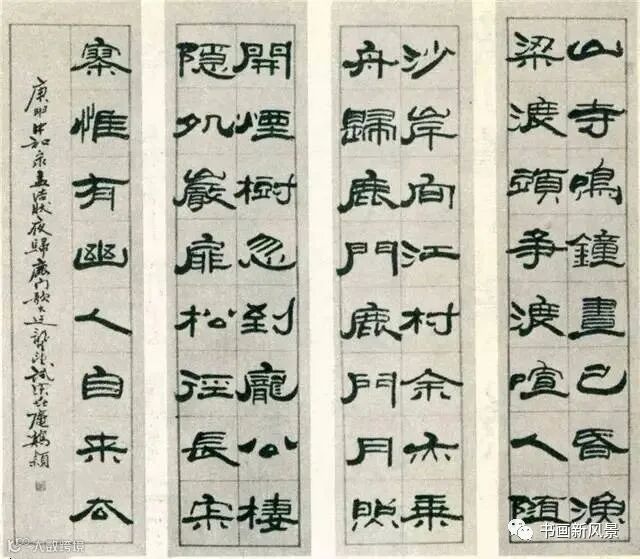 山寺鳴鐘晝已昏漁
梁渡頭爭渡喧人隨
沙岸向江村余亦乘
舟歸鹿門鹿門月照
開煙樹忽到龐公棲
隱処巖扉松徑長寂
寥惟有幽人自来去
孟浩然夜歸鹿門歌
大数跨境
书画新风景